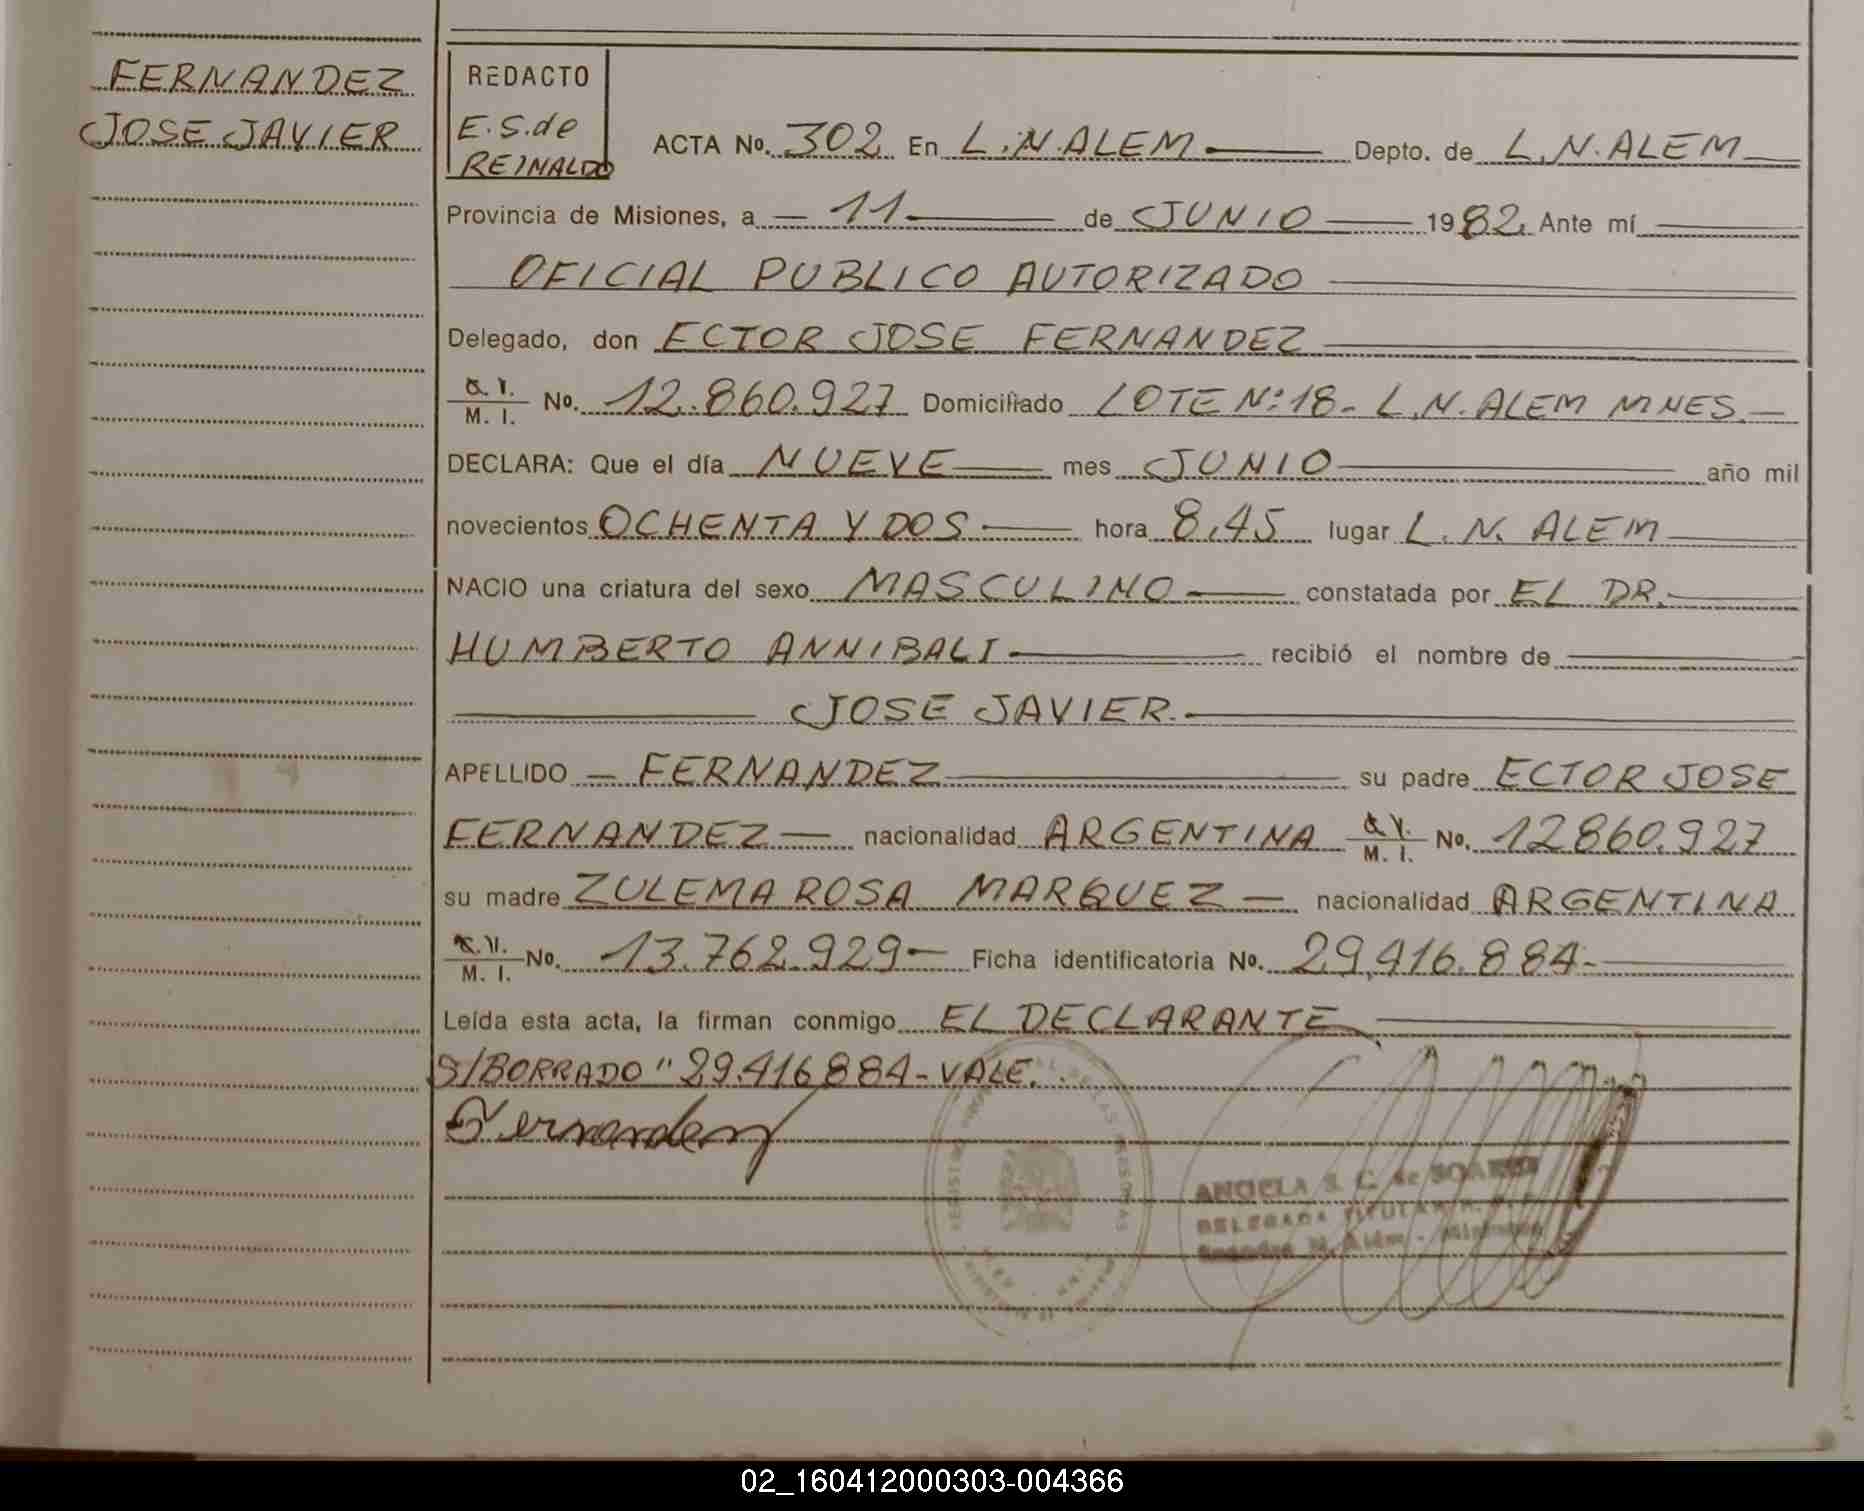 FERNANDEZ
JOSE JAVIER
REDACTO
E.S.de
REINALDO
ACTA No. 302 En L.N.ALEM Depto. de L.N.ALEM
Provincia de Misiones, a 11 de JUNIO 1982. Ante mí
OFICIAL PUBLICO AUTORIZADO
Delegado, don ECTOR JOSE FERNANDEZ
M. I. No. 12.860.927 Domiciliado LOTE Nº18- L.N.ALEM MNES.
DECLARA: Que el día NUEVE mes JUNIO año mil
novecientos OCHENTA Y DOS hora 8,45 lugar L. N. ALEM
NACIO una criatura del sexo MASCULINO constatada por EL DR.
HUMBERTO ANNIBALI recibió el nombre de
JOSE JAVIER.
APELLIDO FERNANDEZ su padre ECTOR JOSE
FERNANDEZ nacionalidad ARGENTINA M. I. No. 12860.927
su madre ZULEMA ROSA MARQUEZ nacionalidad ARGENTINA
M. I. No. 13.762.929 Ficha identificatoria No. 29,416.884-
Leída esta acta, la firman conmigo EL DECLARANTE
S/BORRADO "29.416884- VALE.
Fernandez
ANGELA S. C. de
DELEGADA TITULAR
N. Alem - Misiones
02_160412000303-004366